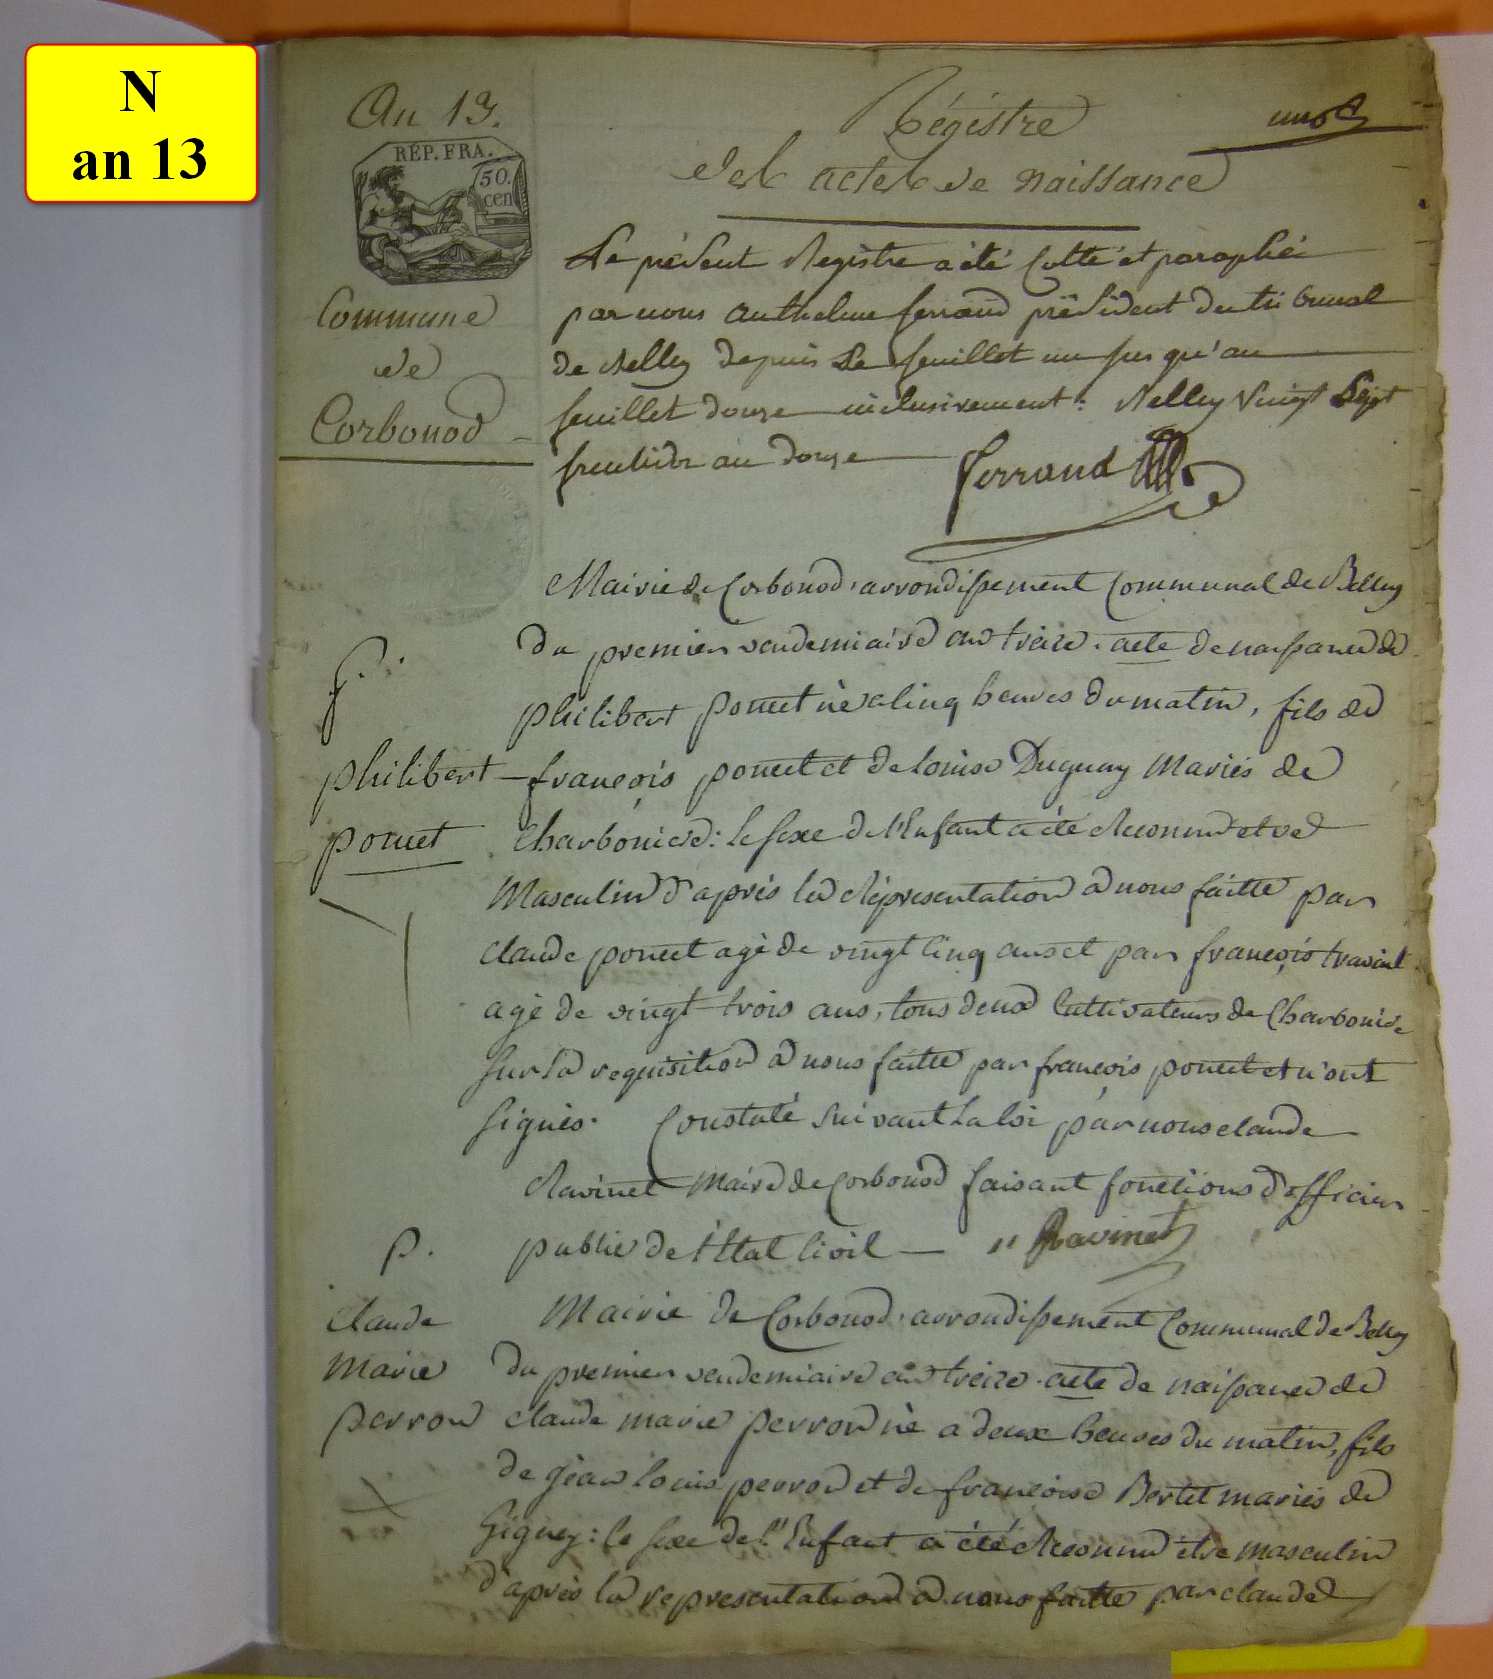 N
an 13
An 13.
RÉP. FRA.
50.
cen
Commune
de
Corbonod
Régistre
des actes de naissance
Le présent Registre a été Cotté et paraphé
par nous Anthelme ferrand président du tribunal
de Belley depuis le feuillet un jusqu'au
feuillet douze inclusivement : Belley Vingt Sept
fructidor an douze
ferrand
Mairie de Corbonod, arrondissement Communal de Belley
du premier vendemiaire an treize. acte de naissance de
philibert poncet né a Cinq heures du matin, fils de
françois poncet et de louise Duguay Mariés de
Charboniere : le sexe de l'Enfant a été Reconnu etre
Masculin d'après la Répresentation a nous faitte par
claude poncet agé de vingt Cinq ans et par françois travail
agé de vingt trois ans, tous deux Cultivateurs de Charboniere
sur la requisition a nous faitte par françois poncet et n'ont
signés. Constaté suivant la loi par nous claude
Ravinet Maire de Corbonod faisant fonctions d'officier
public de l'Etat Civil — " Ravinet
philibert
poncet
p.
claude
marie
perron
Mairie de Corbonod, arrondissement Communal de Belley
du premier vendemiaire an treize. acte de naissance de
claude marie perron né a deux heures du matin, fils
de géan louis perron et de françoise Bertet mariés de
Gigney : le sexe de l'Enfant a été Reconnu etre masculin
d'après la representation a nous faitte par claude